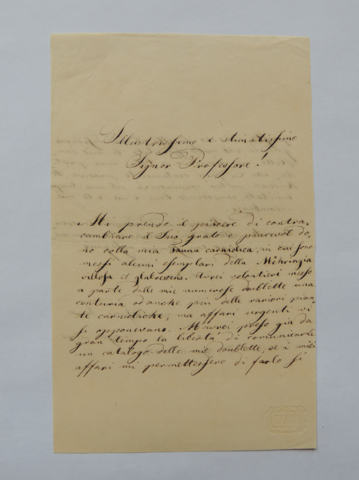 Illustrissimo e stimatissimo
Signor Professore!
Mi prendo il piacere di contra,
cambiare il Suo grato e piacevol do,
no colla mia Fauna carniolica, in cui fram
messi alcuni esemplari della Möhringia
villosa et glabrescens. Avrei volentieri messo
a parte delle mie numerose doublette una
centuria od anche piu delle varioni pian,
te carnioliche, ma affari urgenti vi
si opponevano. M'avrei preso già da
gran tempo la libertà di comunicarle
un catalogo delle mie doublette, se i miei
affari mi permettessero di farlo. Si